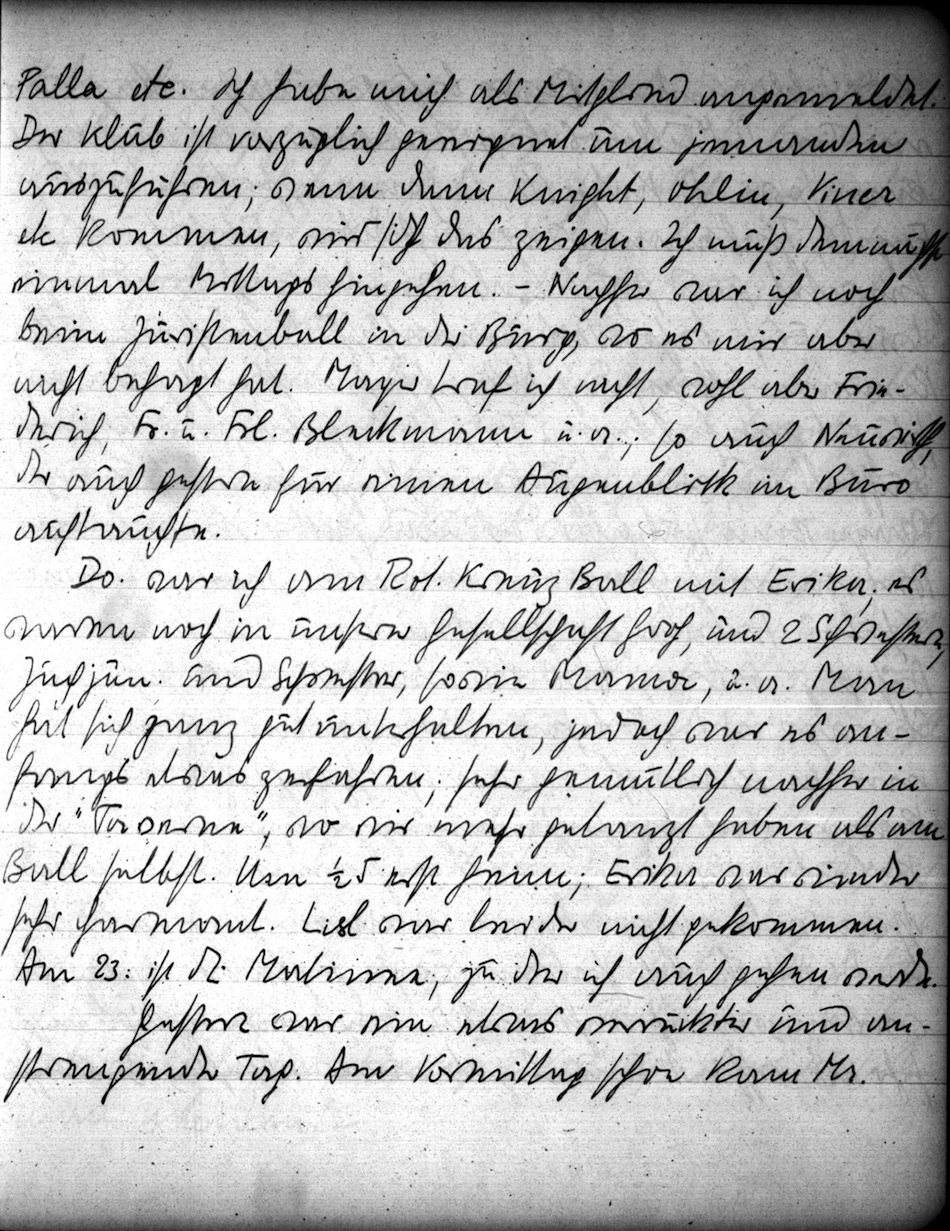 Palla etc. Ich habe mich als Mitglied angemeldet.
Der Klub ist vorzüglich geeignet um jemanden
auszuführen; wenn dann Knight, Ohlin, Viner
etc kommen, wird sich das zeigen. Ich muß demnächst
einmal Mittags hingehen. – Nachher war ich noch
beim Juristenball in der Burg, wo es mir aber
nicht behagt hat. Mayer traf ich nicht, wohl aber Frie-
derich, Fr. u. Frl. Bleckmann u. a.; so auch
der auch gestern für einen Augenblick im Büro
auftauchte.
Do. war ich am Rot. Kreuz Ball mit Erika; es
waren noch in unserer Gesellschaft und 2 Schwestern,
jun. und Schwester, sowie Mama, u. a. Man
hat sich ganz gut unterhalten, jedoch war es an-
fangs etwas zerfahren; sehr gemütlich nachher in
der "Taverne", wo wir mehr getanzt haben als am
Ball selbst. Um ½5 erst heim; Erika war wieder
sehr charmant. Lisl war leider nicht gekommen.
Am 23. ist d. Matinee, zu der ich auch gehen werde.
Gestern war ein etwas verrückter und an-
strengender Tag. Am Vormittag schon kam Mr.